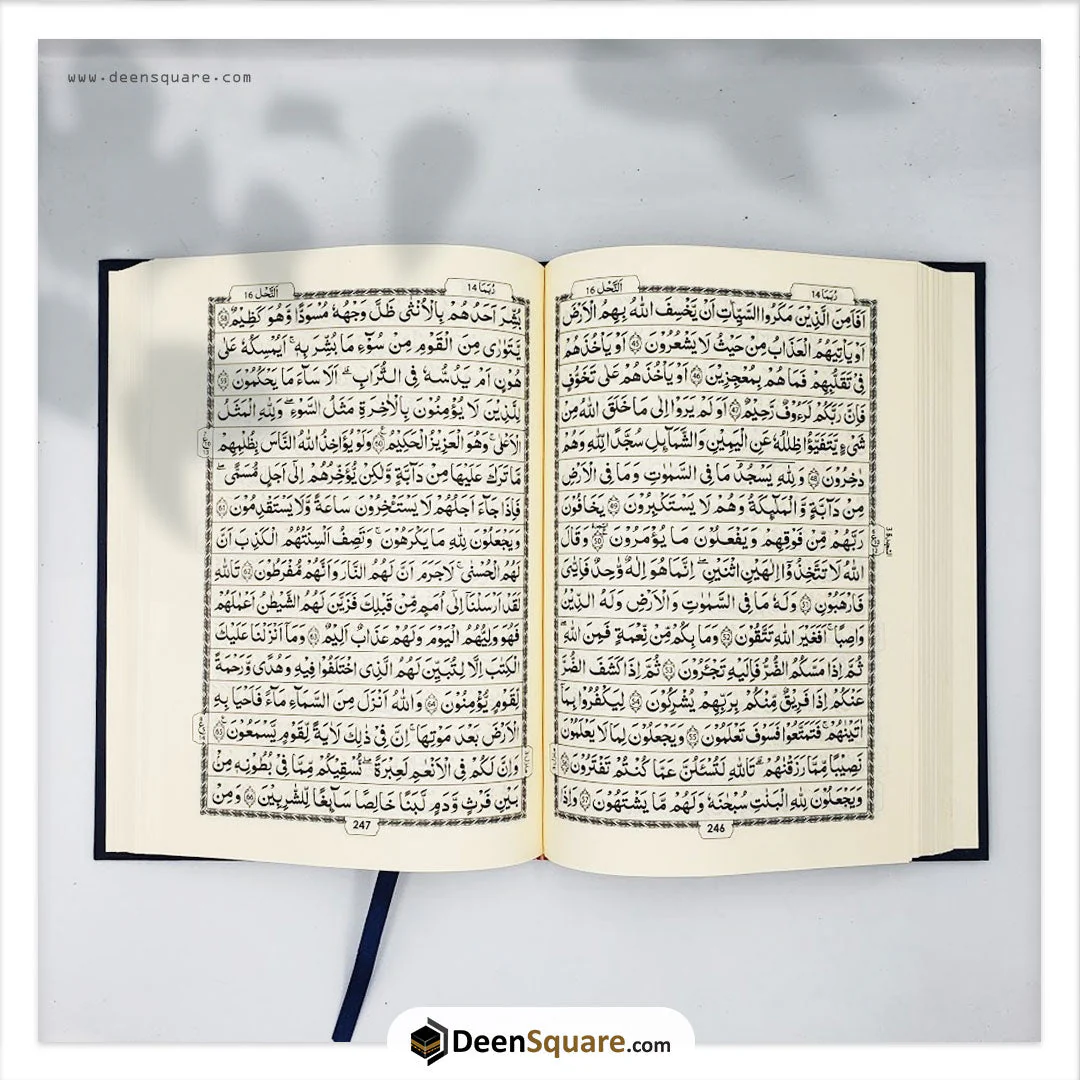 www.deensquare.com
رُبَمَا 14
اَلنَّحْل 16
اَفَاَمِنَ الَّذِيْنَ مَكَرُوا السَّيِّاٰتِ اَنْ يَّخْسِفَ اللّٰهُ بِهِمُ الْاَرْضَ
اَوْ يَاْتِيَهُمُ الْعَذَابُ مِنْ حَيْثُ لَا يَشْعُرُوْنَ 45 اَوْ يَاْخُذَهُمْ
فِيْ تَقَلُّبِهِمْ فَمَا هُمْ بِمُعْجِزِيْنَ 46 اَوْ يَاْخُذَهُمْ عَلٰى تَخَوُّفٍ
فَاِنَّ رَبَّكُمْ لَرَءُوْفٌ رَّحِيْمٌ 47 اَوَ لَمْ يَرَوْا اِلٰى مَا خَلَقَ اللّٰهُ مِنْ
شَيْءٍ يَّتَفَيَّؤُا ظِلٰلُهٗ عَنِ الْيَمِيْنِ وَالشَّمَآئِلِ سُجَّدًا لِّلّٰهِ وَهُمْ
دٰخِرُوْنَ 48 وَلِلّٰهِ يَسْجُدُ مَا فِى السَّمٰوٰتِ وَمَا فِى الْاَرْضِ
مِنْ دَآبَّةٍ وَّالْمَلٰٓئِكَةُ وَهُمْ لَا يَسْتَكْبِرُوْنَ 49 يَخَافُوْنَ
رَبَّهُمْ مِّنْ فَوْقِهِمْ وَيَفْعَلُوْنَ مَا يُؤْمَرُوْنَ 50 وَقَالَ
اللّٰهُ لَا تَتَّخِذُوْٓا اِلٰهَيْنِ اثْنَيْنِ ۚ اِنَّمَا هُوَ اِلٰهٌ وَّاحِدٌ فَاِيَّايَ
فَارْهَبُوْنِ 51 وَلَهٗ مَا فِى السَّمٰوٰتِ وَالْاَرْضِ وَلَهُ الدِّيْنُ
وَاصِبًا ؕ اَفَغَيْرَ اللّٰهِ تَتَّقُوْنَ 52 وَمَا بِكُمْ مِّنْ نِّعْمَةٍ فَمِنَ اللّٰهِ
ثُمَّ اِذَا مَسَّكُمُ الضُّرُّ فَاِلَيْهِ تَجْـَٔرُوْنَ 53 ثُمَّ اِذَا كَشَفَ الضُّرَّ
عَنْكُمْ اِذَا فَرِيْقٌ مِّنْكُمْ بِرَبِّهِمْ يُشْرِكُوْنَ 54 لِيَكْفُرُوْا بِمَآ
اٰتَيْنٰهُمْ ؕ فَتَمَتَّعُوْا فَسَوْفَ تَعْلَمُوْنَ 55 وَيَجْعَلُوْنَ لِمَا لَا يَعْلَمُوْنَ
نَصِيْبًا مِّمَّا رَزَقْنٰهُمْ ؕ تَاللّٰهِ لَتُسْـَٔلُنَّ عَمَّا كُنْتُمْ تَفْتَرُوْنَ 56
وَيَجْعَلُوْنَ لِلّٰهِ الْبَنٰتِ سُبْحٰنَهٗ وَلَهُمْ مَّا يَشْتَهُوْنَ 57 وَاِذَا
246
رُبَمَا 14
اَلنَّحْل 16
بُشِّرَ اَحَدُهُمْ بِالْاُنْثٰى ظَلَّ وَجْهُهٗ مُسْوَدًّا وَّهُوَ كَظِيْمٌ 58
يَتَوَارٰى مِنَ الْقَوْمِ مِنْ سُوْٓءِ مَا بُشِّرَ بِهٖ ؕ اَيُمْسِكُهٗ عَلٰى
هُوْنٍ اَمْ يَدُسُّهٗ فِى التُّرَابِ ؕ اَلَا سَآءَ مَا يَحْكُمُوْنَ 59
لِلَّذِيْنَ لَا يُؤْمِنُوْنَ بِالْاٰخِرَةِ مَثَلُ السَّوْءِ ۚ وَلِلّٰهِ الْمَثَلُ
الْاَعْلٰى ؕ وَهُوَ الْعَزِيْزُ الْحَكِيْمُ 60 وَلَوْ يُؤَاخِذُ اللّٰهُ النَّاسَ بِظُلْمِهِمْ
مَّا تَرَكَ عَلَيْهَا مِنْ دَآبَّةٍ وَّلٰكِنْ يُّؤَخِّرُهُمْ اِلٰٓى اَجَلٍ مُّسَمًّى ۚ
فَاِذَا جَآءَ اَجَلُهُمْ لَا يَسْتَـْٔخِرُوْنَ سَاعَةً وَّلَا يَسْتَقْدِمُوْنَ 61
وَيَجْعَلُوْنَ لِلّٰهِ مَا يَكْرَهُوْنَ وَتَصِفُ اَلْسِنَتُهُمُ الْكَذِبَ اَنَّ
لَهُمُ الْحُسْنٰى ؕ لَا جَرَمَ اَنَّ لَهُمُ النَّارَ وَاَنَّهُمْ مُّفْرَطُوْنَ 62 تَاللّٰهِ
لَقَدْ اَرْسَلْنَآ اِلٰٓى اُمَمٍ مِّنْ قَبْلِكَ فَزَيَّنَ لَهُمُ الشَّيْطٰنُ اَعْمَالَهُمْ
فَهُوَ وَلِيُّهُمُ الْيَوْمَ وَلَهُمْ عَذَابٌ اَلِيْمٌ 63 وَمَآ اَنْزَلْنَا عَلَيْكَ
الْكِتٰبَ اِلَّا لِتُبَيِّنَ لَهُمُ الَّذِى اخْتَلَفُوْا فِيْهِ وَهُدًى وَّرَحْمَةً
لِّقَوْمٍ يُّؤْمِنُوْنَ 64 وَاللّٰهُ اَنْزَلَ مِنَ السَّمَآءِ مَآءً فَاَحْيَا بِهِ
الْاَرْضَ بَعْدَ مَوْتِهَا ؕ اِنَّ فِيْ ذٰلِكَ لَاٰيَةً لِّقَوْمٍ يَّسْمَعُوْنَ 65
وَاِنَّ لَكُمْ فِى الْاَنْعَامِ لَعِبْرَةً ؕ نُسْقِيْكُمْ مِّمَّا فِيْ بُطُوْنِهٖ مِنْۢ
بَيْنِ فَرْثٍ وَّدَمٍ لَّبَنًا خَالِصًا سَآئِغًا لِّلشّٰرِبِيْنَ 66 وَمِنْ
247
DeenSquare.com